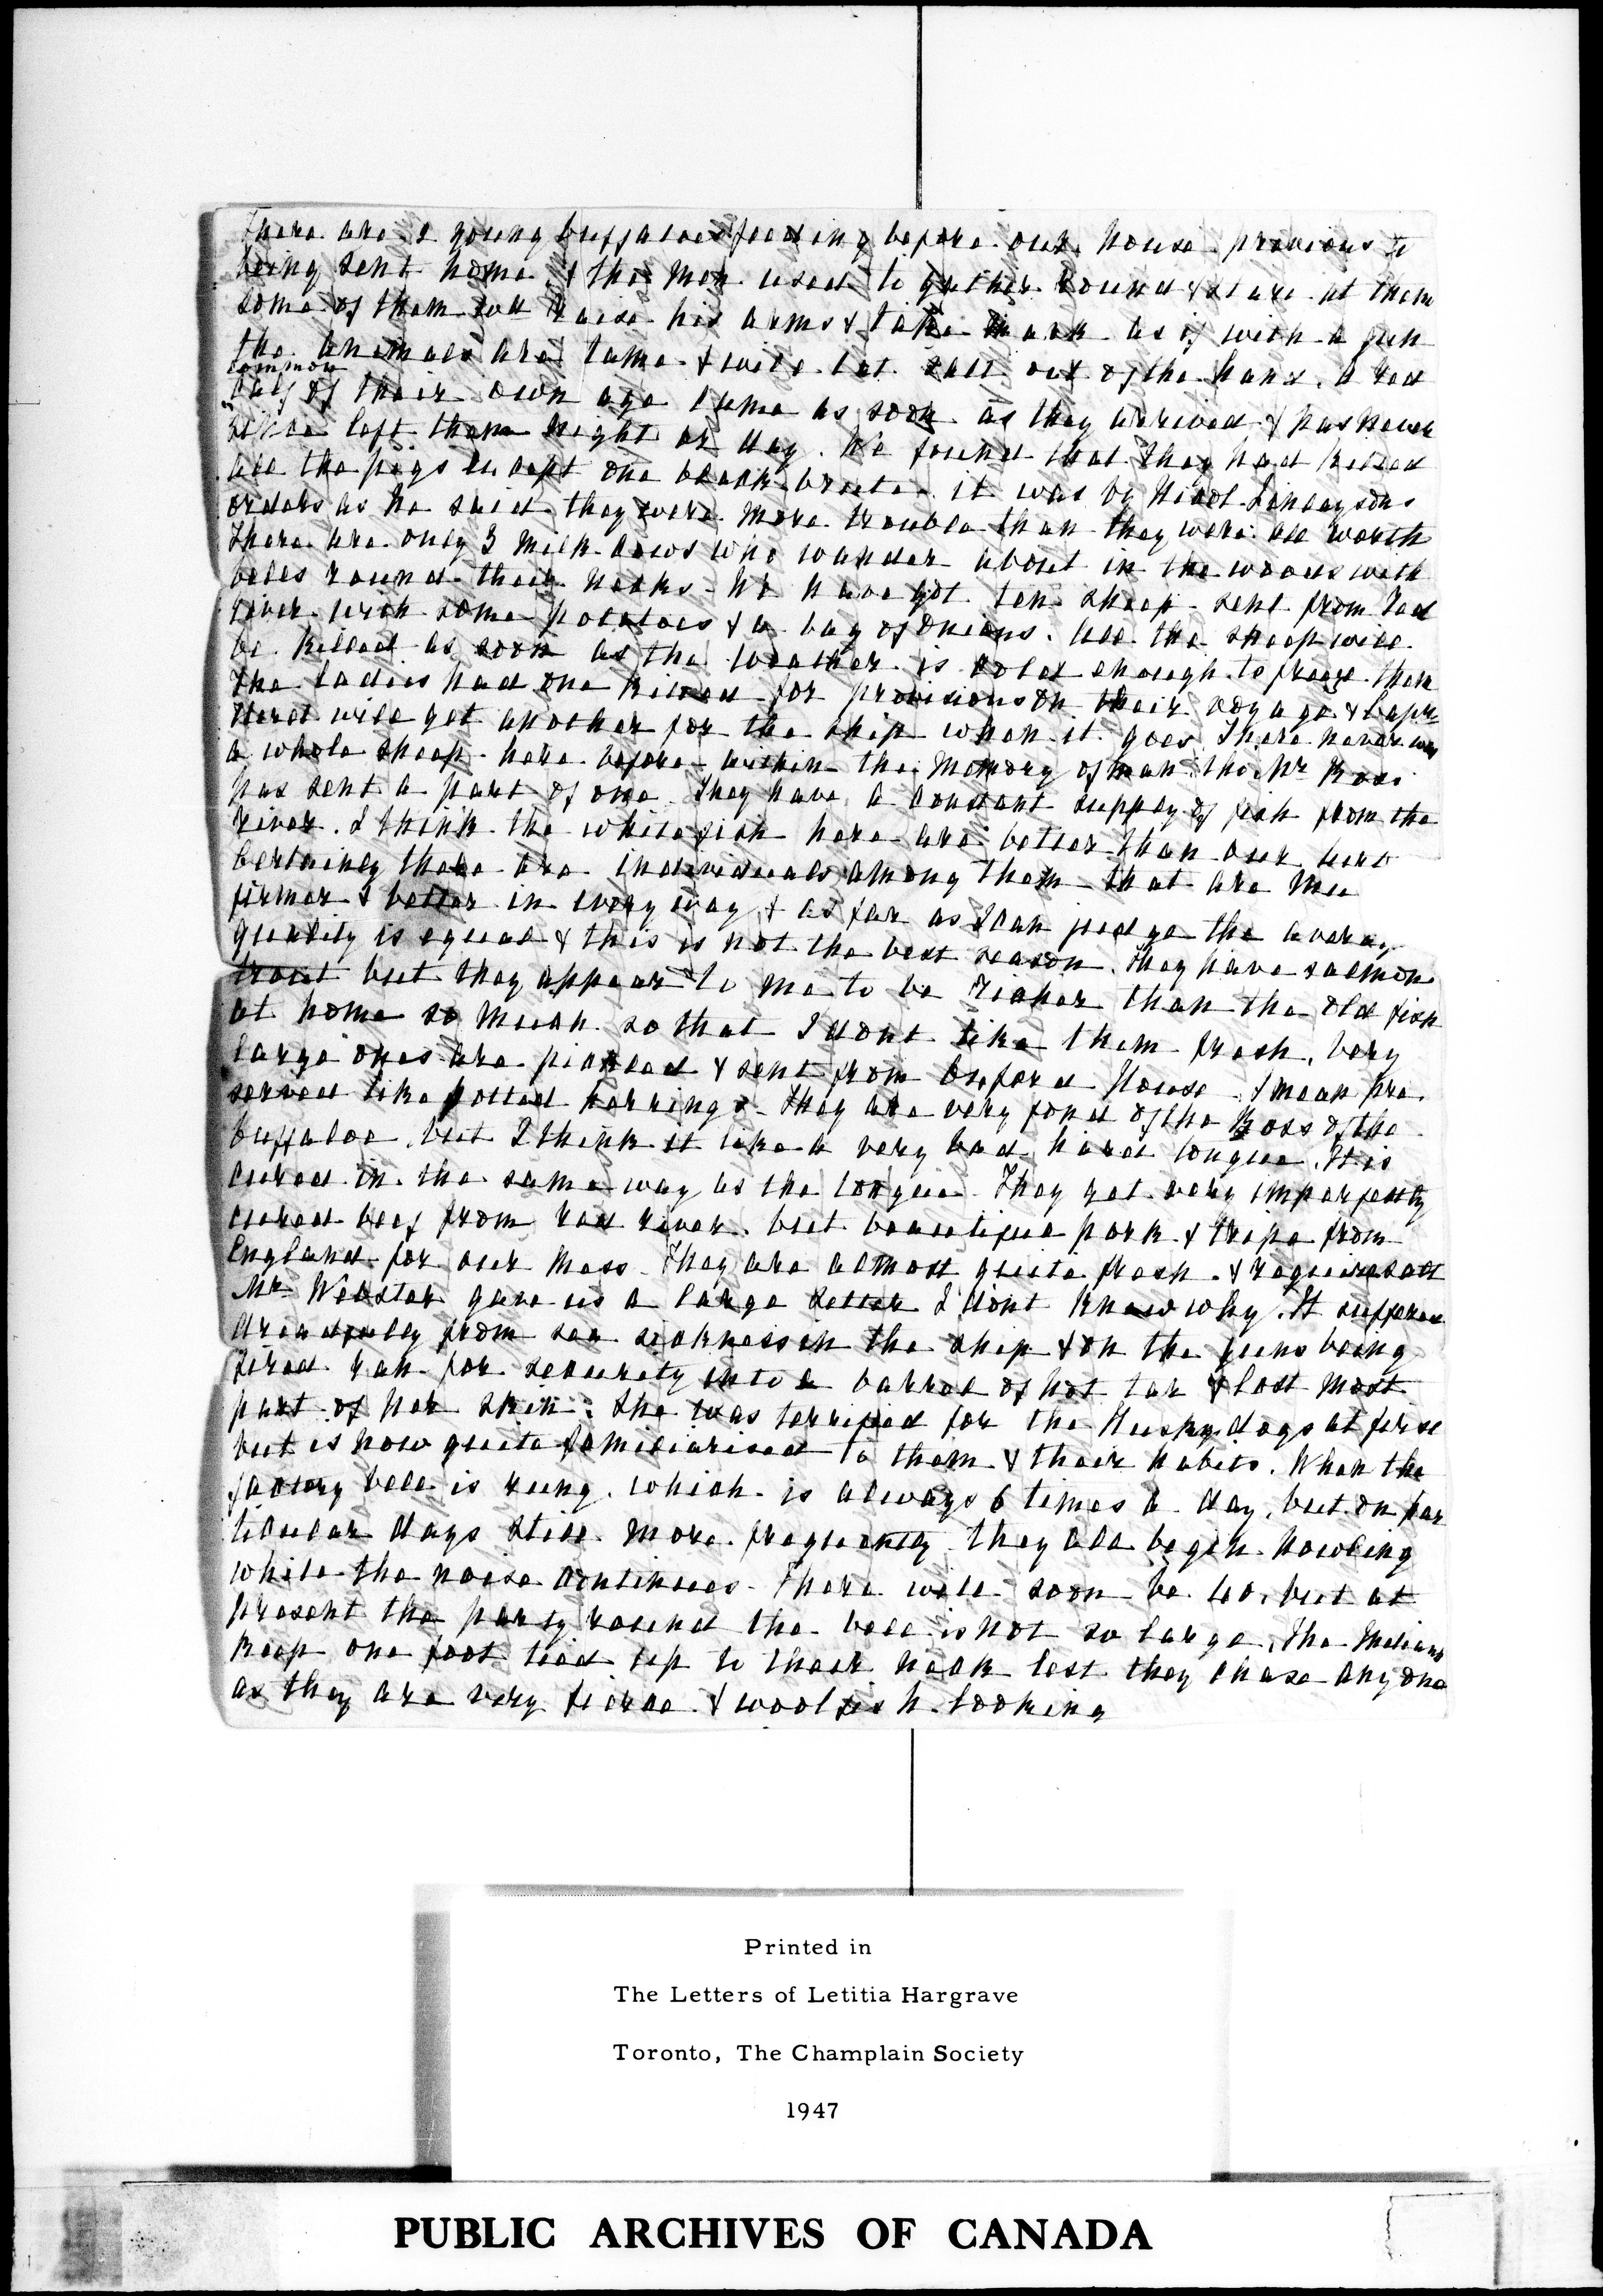 There are 2 young buffaloes feeding before our house previous to
being sent home & the men used to gather round & stare at them
some of them wd raise his arms & take mark as if with a gun
the animals are tame & will eat salt out of the hand. A red
common
calf of their own age came as soon as they arrived & has never
since left them night or day. We found that they had killed
all the pigs except one black brute. it was by Nicol Finlaysons
orders as he said they were more trouble than they were all worth
There are only 3 milk cows who wander about in the woods with
bells round their necks. We have got ten sheep sent from Red
River with some potatoes & a bag of onions. All the sheep will
be killed as soon as the weather is cold enough to freeze them
The ladies had one killed for provision on their voyage & Captn
Herd will get another for the ship when it goes. There never was
a whole sheep here before within the memory of man tho Mr Ross
has sent a part of one. They have a constant supply of fish from the
river. I think the white fish here are better than our turbot
certainly there are individuals among them that are much
firmer & better in every way & as far as I can judge the average
quality is equal & this is not the best season. They have salmon
trout but they appear to me to be richer than the old fish
at home so much so that I dont like them fresh. Very
large ones are pickled & sent from Oxford House. I mean pre
served like potted herrings. They are very fond of the Boss of the
buffaloe, but I think it like a very bad hard tongue. It is
cured in the same way as the tongue. They get very imperfectly
cured beef from red river. but beautiful pork & tripe from
England for our Mess. They are almost quite fresh & require salt
Mr Webster gave us a large Setter I dont know why. It suffered
dreadfully from sea sickness in the ship & on the guns being
fired ran for security into a barrel of hot tar & lost most
part of her skin. She was terrified for the Husky dogs at first
but is now quite familiarised to them & their habits. When the
factory bell is rung. which is always 6 times a day, but on par
ticular days still more frequently they all begin howling
while the noise continues. There will soon be 40, but at
present the party round the bell is not so large. The Indians
keep one foot tied up to their neck lest they chase any one
as they are very fierce & woolfish looking
Printed in
The Letters of Letitia Hargrave
Toronto, The Champlain Society
1947
PUBLIC ARCHIVES OF CANADA